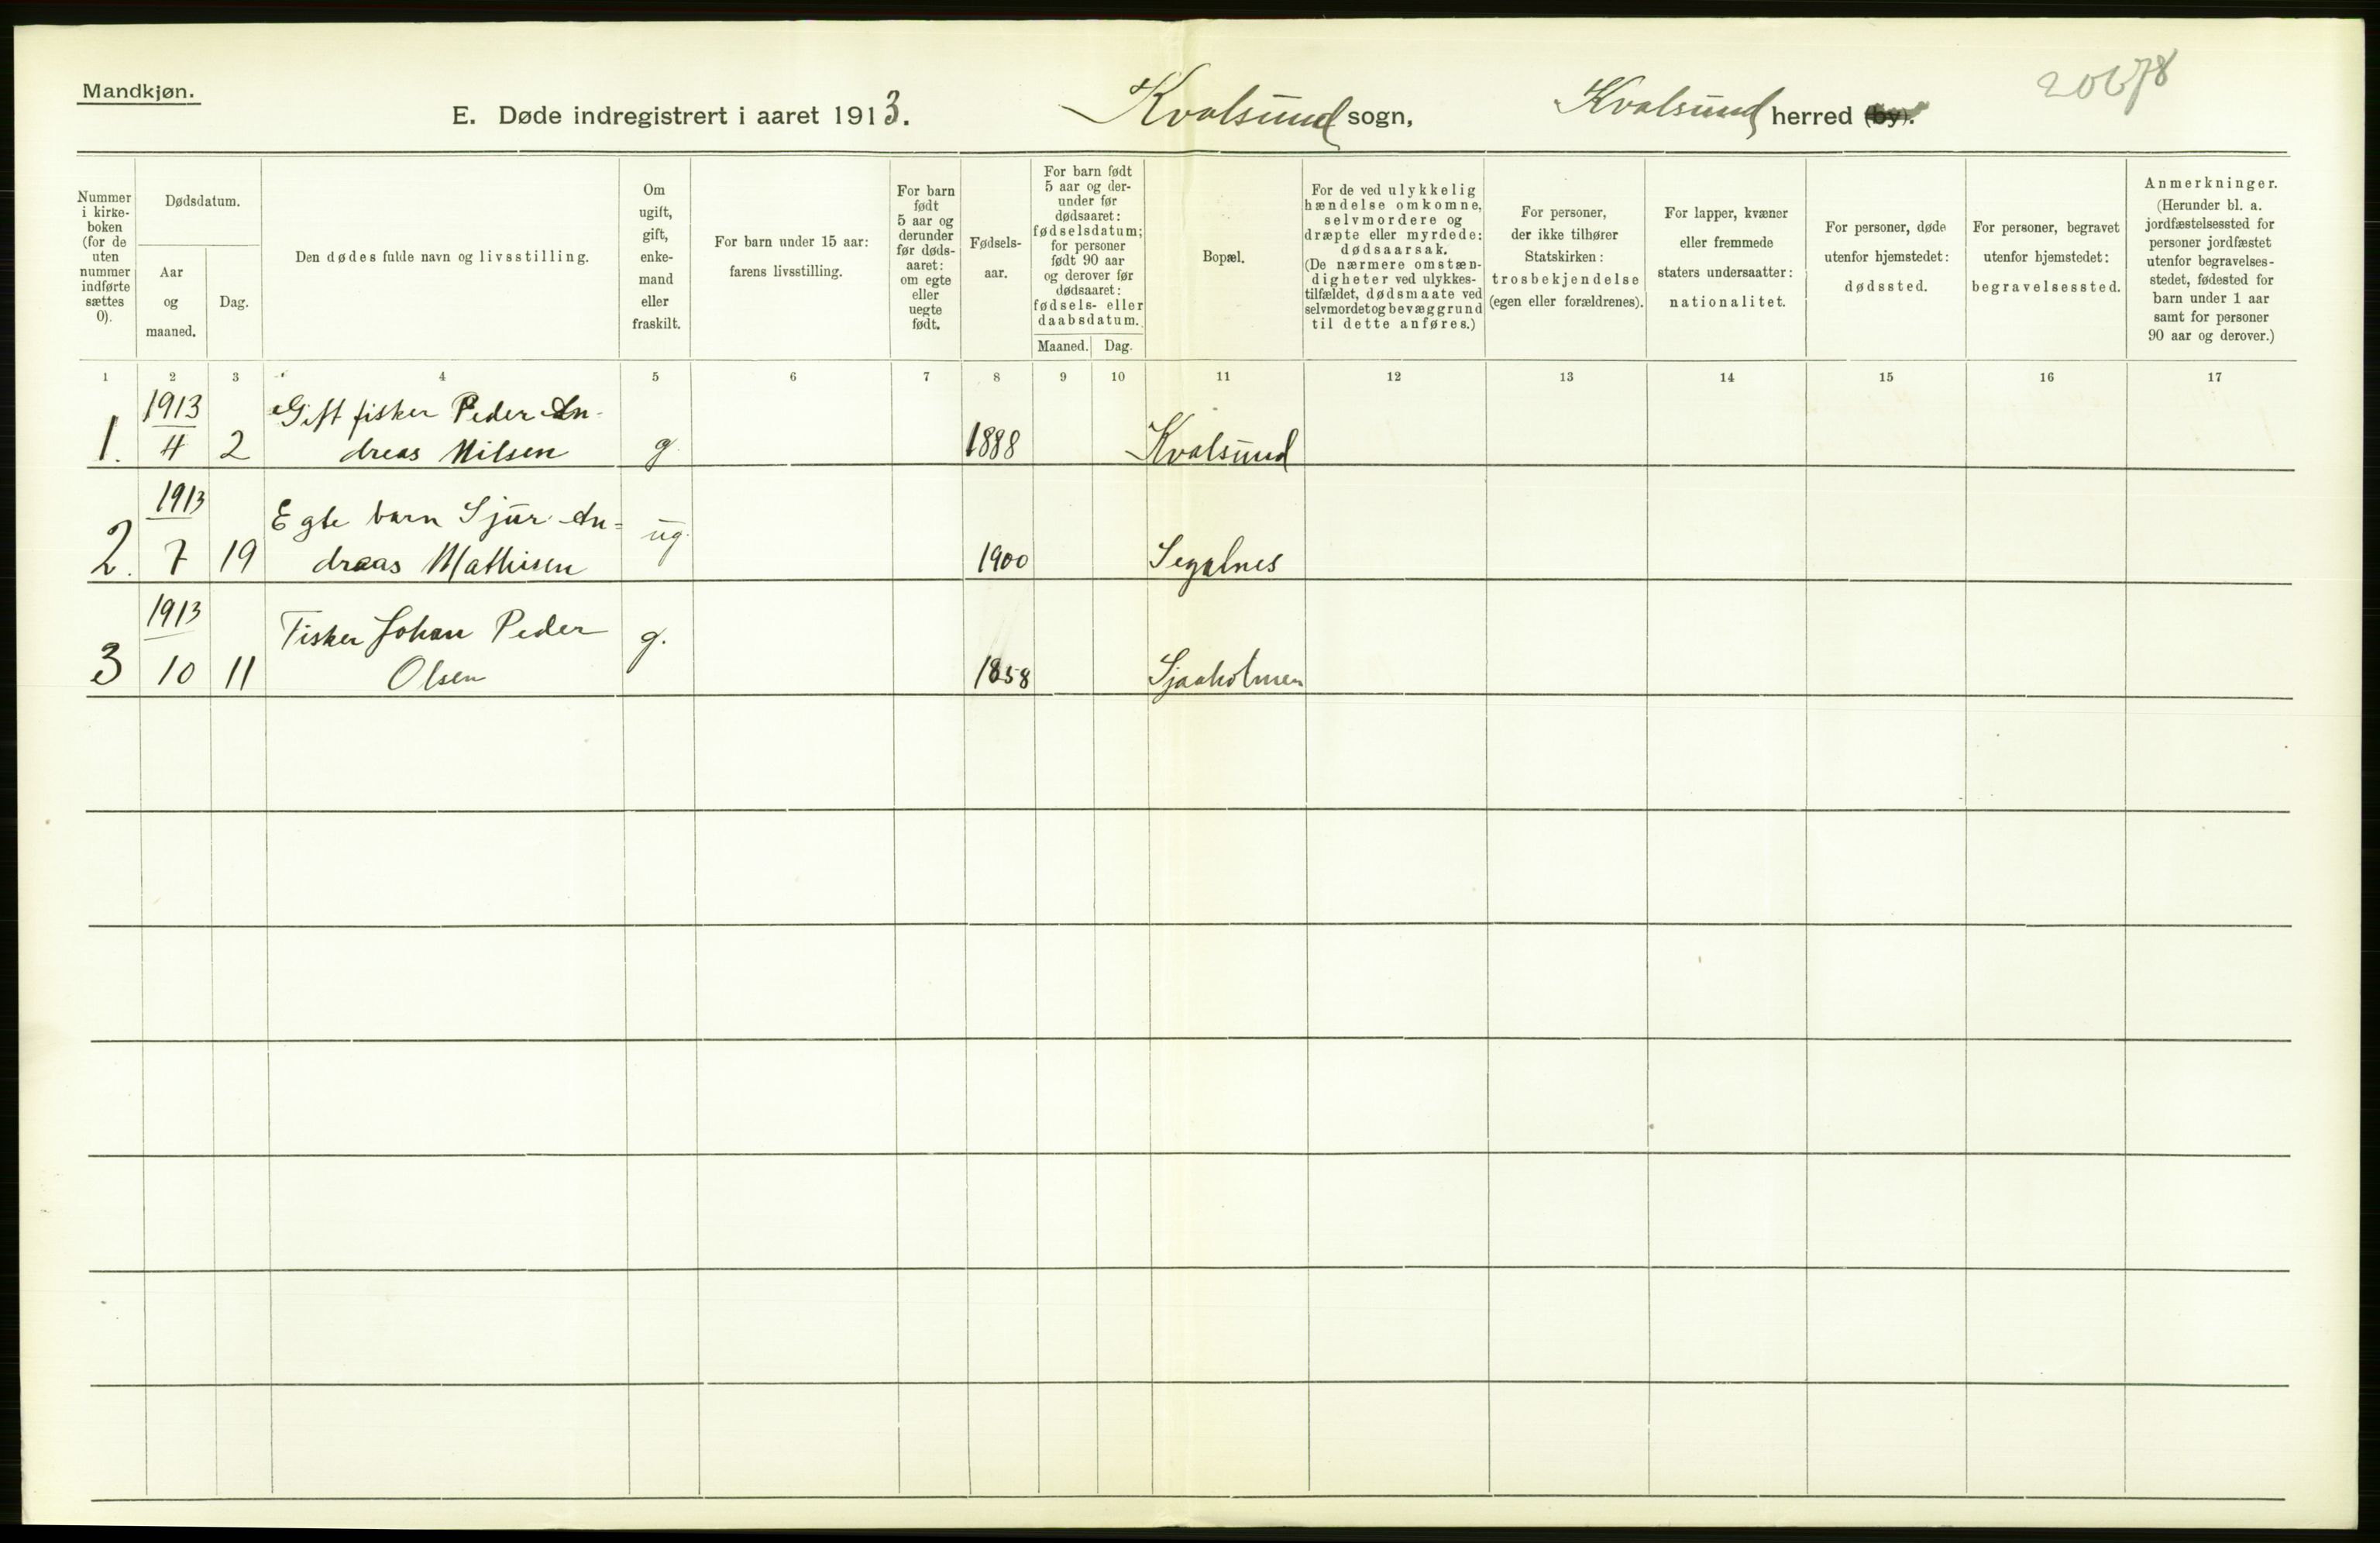 Mandkjøn.
E. Døde indregistrert i aaret 1913.
Kvalsund sogn,
Kvalsund herred (by).
Nummer i kirke-boken (for de uten nummer indførte sættes 0).
Dødsdatum.
Aar og maaned.
Dag.
Den dødes fulde navn og livsstilling.
Om ugift, gift, enke-mand eller fraskilt.
For barn under 15 aar: farens livsstilling.
For barn født 5 aar og derunder før døds-aaret: om egte eller uegte født.
Fødsels-aar.
For barn født 5 aar og der-under før dødsaaret: fødselsdatum; for personer født 90 aar og derover før dødsaaret: fødsels- eller daabsdatum.
Maaned.
Dag.
Bopæl.
For de ved ulykkelig hændelse omkomne, selvmordere og dræpte eller myrdede: dødsaarsak. (De nærmere omstæn-digheter ved ulykkes-tilfældet, dødsmaate ved selvmordet og bevæggrund til dette anføres.)
For personer, der ikke tilhører Statskirken: trosbekjendelse (egen eller forældrenes).
For lapper, kvæner eller fremmede staters undersaatter: nationalitet.
For personer, døde utenfor hjemstedet: dødssted.
For personer, begravet utenfor hjemstedet: begravelsessted.
Anmerkninger. (Herunder bl. a. jordfæstelsessted for personer jordfæstet utenfor begravelses-stedet, fødested for barn under 1 aar samt for personer 90 aar og derover.)
1 2 3 4 5 6 7 8 9 10 11 12 13 14 15 16 17
1913 Gift fisker Peder An-
1. 4 2 dreas Nilsen g. 1888 Kvalsund
1913 Egte barn Sjur An=
2. 7 19 dreas Mathisen ug. 1900 Segelnes
1913 Fisker Johan Peder
3 10 11 Olsen g. 1858 Sjaaholmen